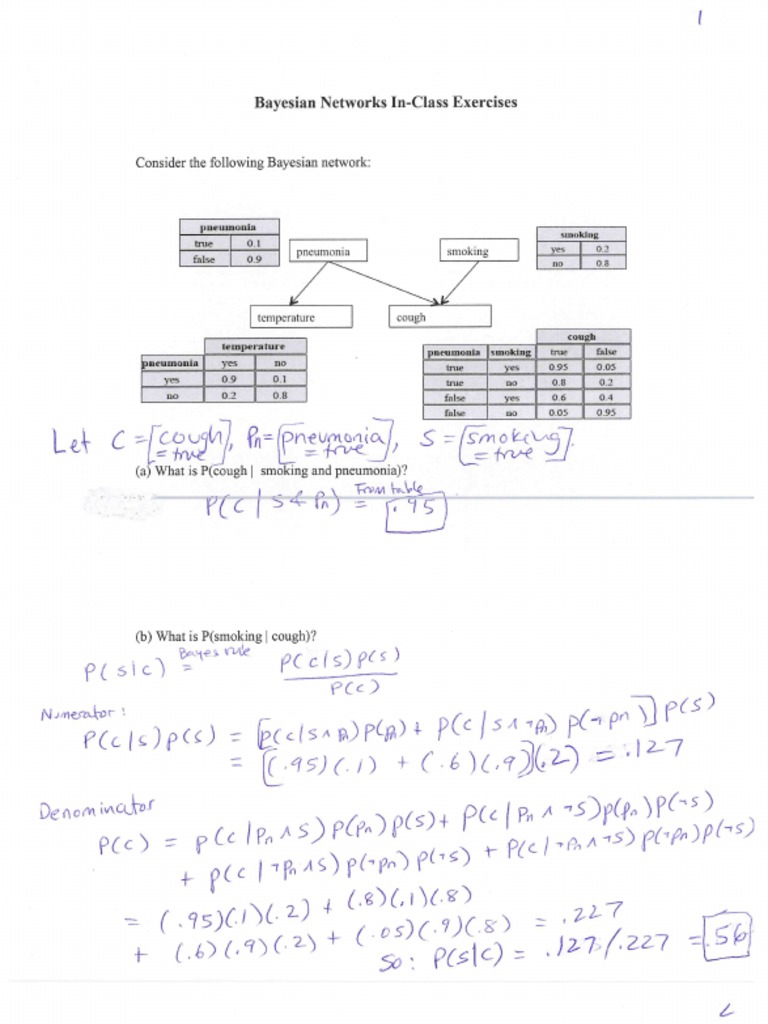 1
Bayesian Networks In-Class Exercises
Consider the following Bayesian network:
pneumonia
true 0.1
false 0.9
pneumonia
smoking
smoking
yes 0.2
no 0.8
temperature
cough
temperature
pneumonia yes no
yes 0.9 0.1
no 0.2 0.8
cough
pneumonia smoking true false
true yes 0.95 0.05
true no 0.8 0.2
false yes 0.6 0.4
false no 0.05 0.95
Let C = [cough = true], Pn = [pneumonia = true], S = [smoking = true].
(a) What is P(cough | smoking and pneumonia)?
P(C | S & Pn) = From table .95
(b) What is P(smoking | cough)?
P(s|c) = Bayes rule P(c|s)p(s) / P(c)
Numerator:
P(c|s)p(s) = [p(c|s∧Pn)P(Pn) + p(c|s∧¬Pn) p(¬pn)] p(s)
= [(.95)(.1) + (.6)(.9)](.2) = .127
Denominator
P(c) = p(c|Pn∧S) P(pn) p(s) + P(c|Pn∧¬S)p(pn)P(¬s)
+ p(c|¬Pn∧S) p(¬pn) p(¬s) + P(c|¬Pn∧¬S) p(¬pn) p(¬s)
= (.95)(.1)(.2) + (.8)(.1)(.8)
+ (.6)(.9)(.2) + (.05)(.9)(.8) = .227
So: P(s|c) = .127/.227 = .56
2